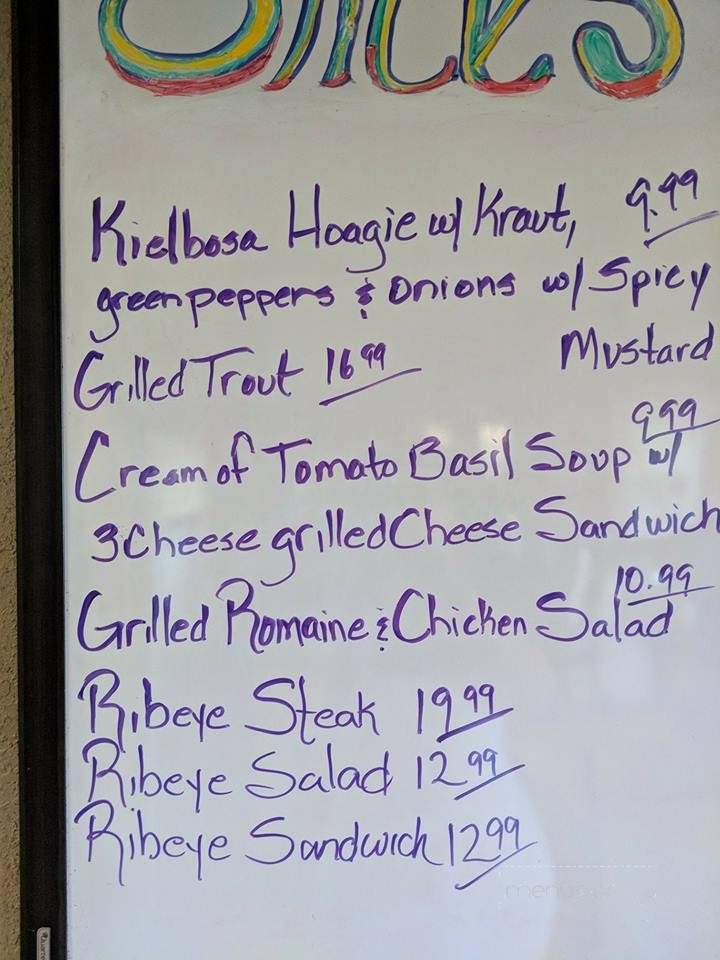 Kielbosa Hoagie w/ Kraut, 9.99
green peppers & Onions w/ Spicy
Mustard
Grilled Trout 16 99
Cream of Tomato Basil Soup w/ 999
3 Cheese grilled Cheese Sandwich
Grilled Romaine & Chicken Salad 10.99
Ribeye Steak 19 99
Ribeye Salad 12 99
Ribeye Sandwich 12 99